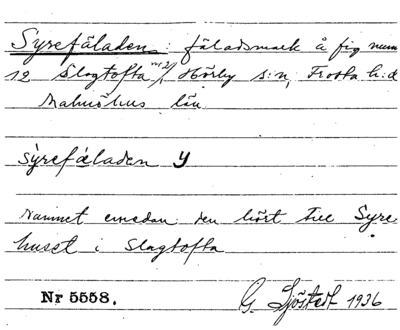 Syrefäladen: fäladsmark å fig num
12 Slagtofta nr 2/1 Hörby s:n, Frosta h:d
Malmöhus län
sýrefæladen y
Namnet emedan den hört till Syre-
huset i Slagtofta
Nr 5558. G. Sjöstedt 1936